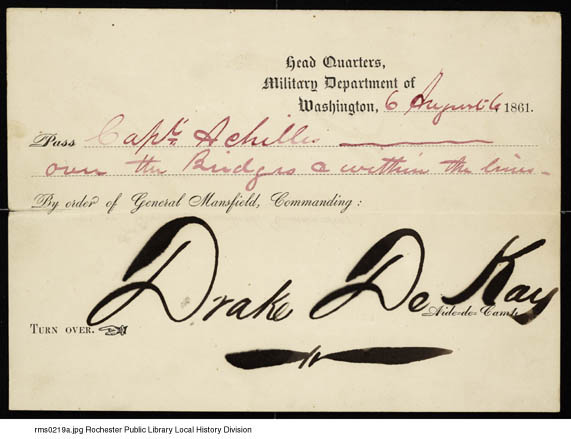 Head Quarters,
Military Department of
Washington, 6 August 1861.
Pass Capt. Achilles
over the Bridges & within the lines -
By order of General Mansfield, Commanding:
Drake De Kay
Aide-de-Camp.
TURN OVER.
rms0219a.jpg Rochester Public Library Local History Division